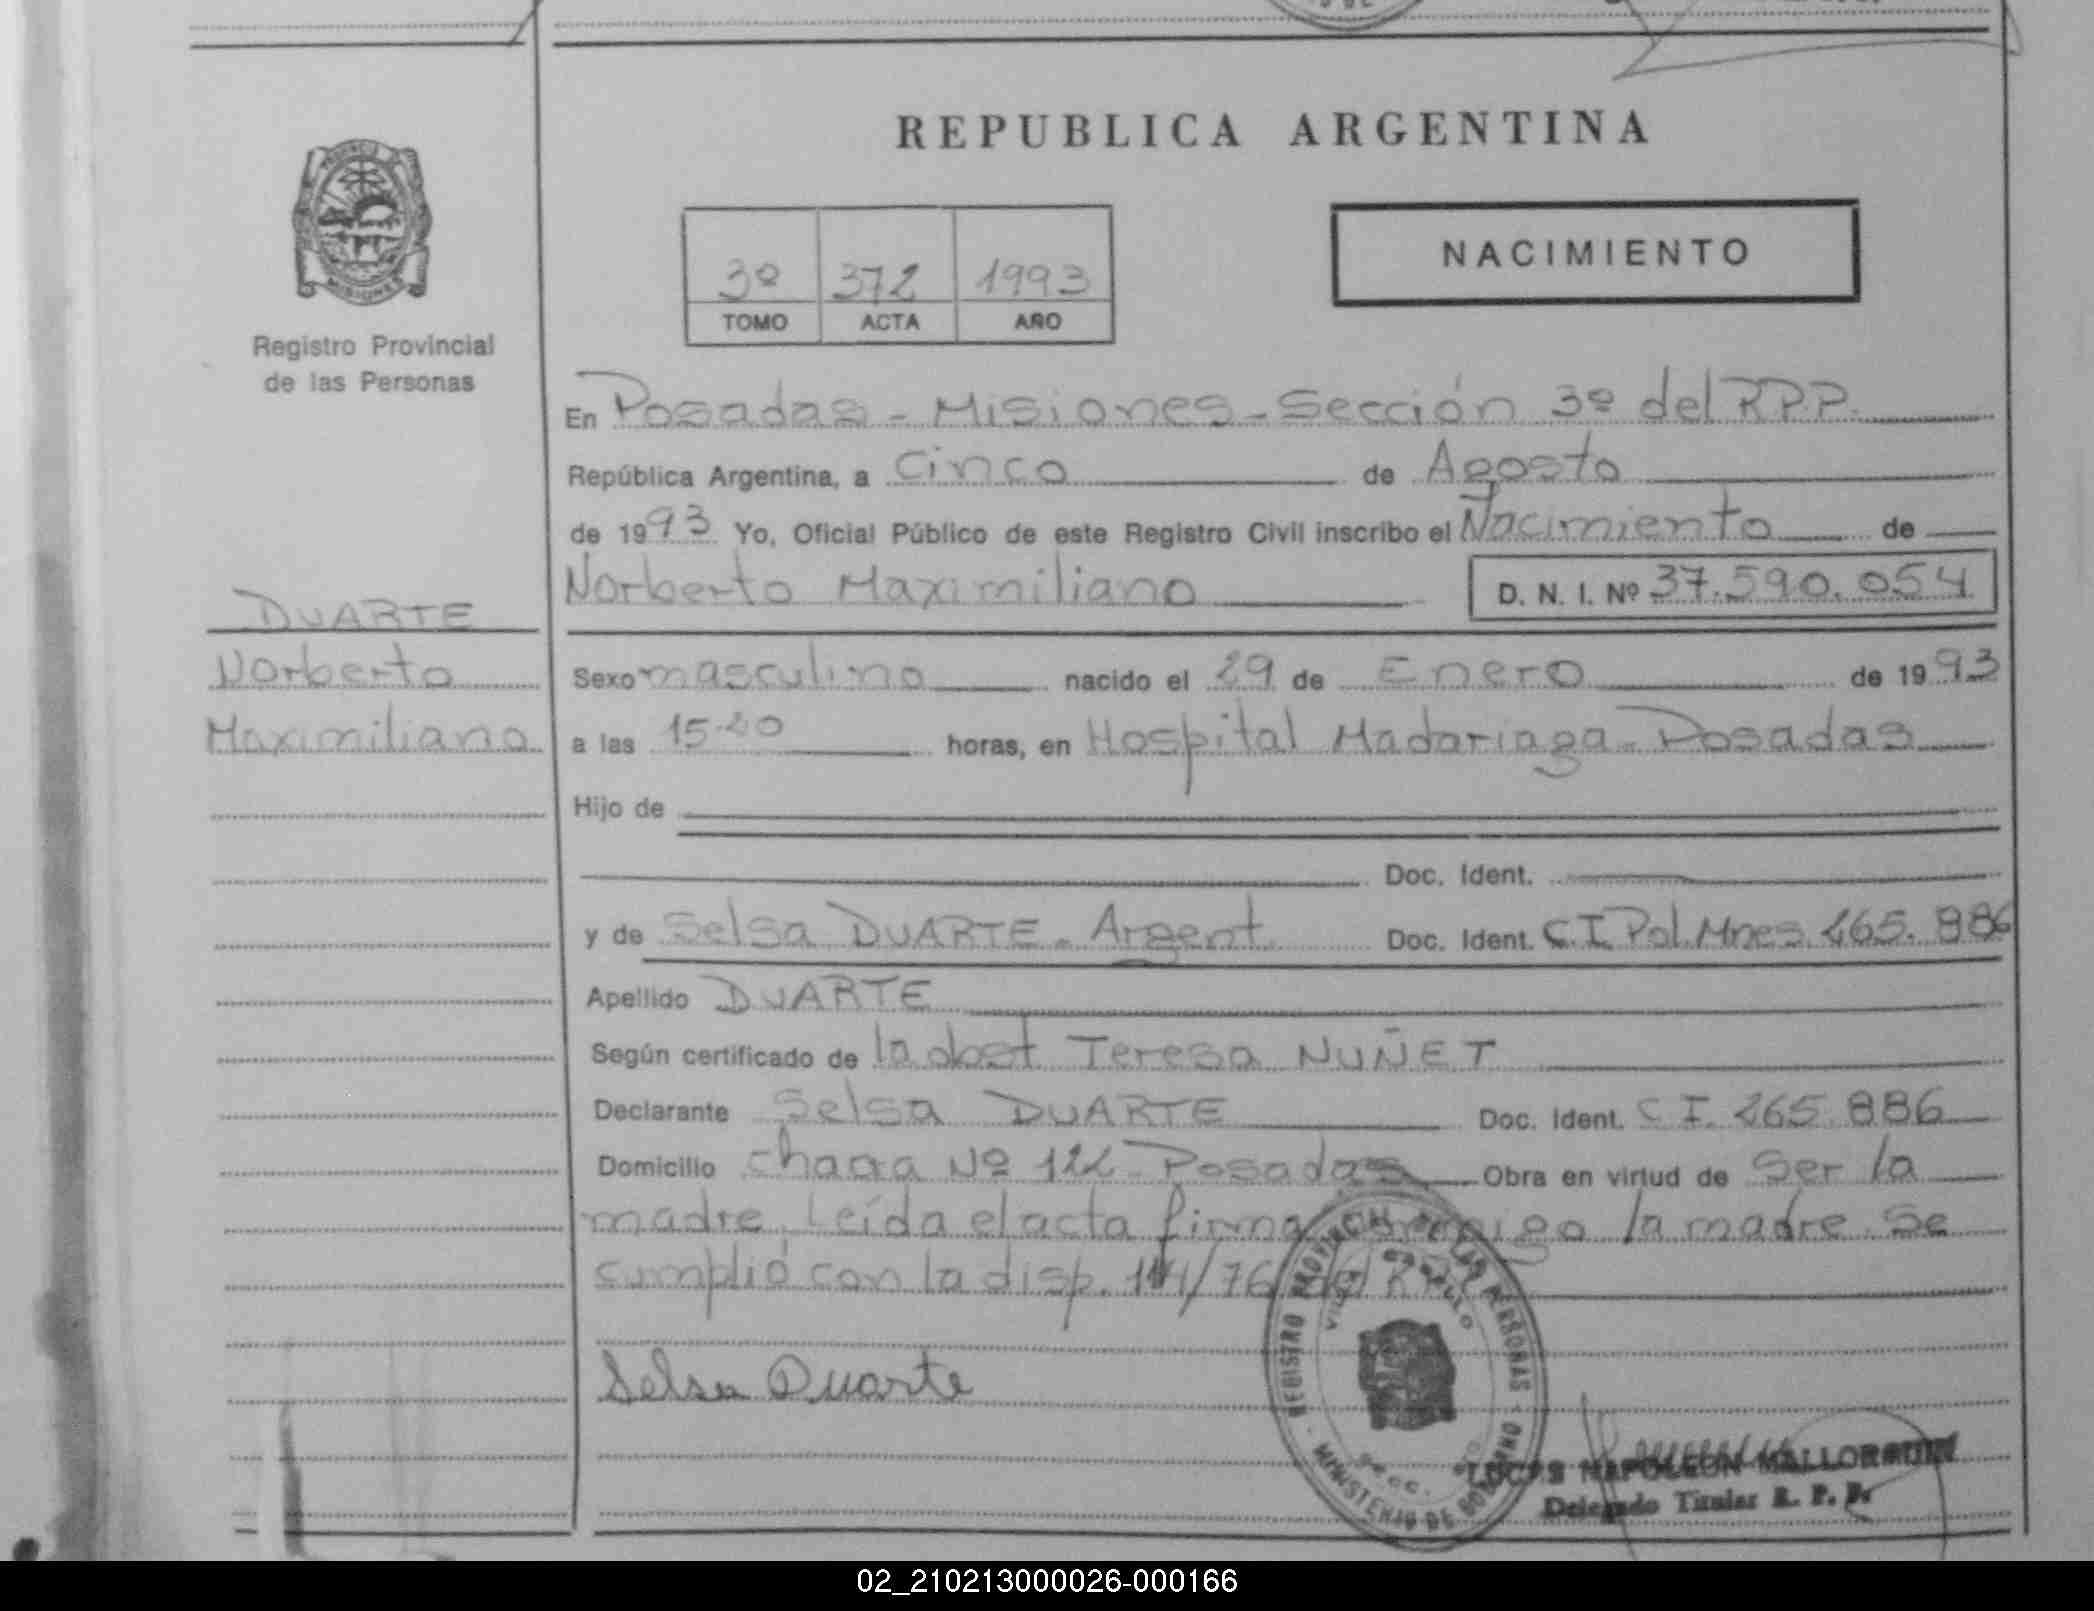 REPUBLICA ARGENTINA
PROVINCIA DE
MISIONES
Registro Provincial
de las Personas
3º 372 1993
TOMO ACTA AÑO
NACIMIENTO
En Posadas - Misiones - Sección 3º del R.P.P.
República Argentina, a Cinco de Agosto
de 1993 Yo, Oficial Público de este Registro Civil inscribo el Nacimiento de
Norberto Maximiliano D. N. I. Nº 37.590.054
DUARTE
Norberto
Maximiliano
Sexo masculino nacido el 29 de Enero de 1993
a las 15.20 horas, en Hospital Madariaga - Posadas
Hijo de
Doc. Ident.
y de Selsa DUARTE - Argent. Doc. Ident. C.I. Pol. Mnes. 265.886
Apellido DUARTE
Según certificado de la obst Teresa NUÑET
Declarante Selsa DUARTE Doc. Ident. C I. 265.886
Domicilio chacra Nº 122 - Posadas Obra en virtud de Ser la
madre. Leída el acta firma conmigo la madre. Se
cumplió con la disp. 114/76 del
REGISTRO PROVINCIAL DE LAS PERSONAS
MINISTERIO DE GOBIERNO
Selsa Duarte
LUCAS NAPOLEON
Delegado Titular R. P. P.
02_210213000026-000166